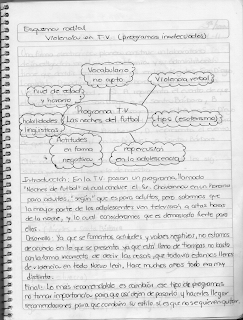 Esquema radial
Violencia en T.V. (programas inadecuados)
Vocabulario
no apto
Violencia verbal
nivel de edad
y horario
Programa T.V.
Las noches del futbol
habilidades
linguisticas
tips (estereotipos)
Actitudes
en forma
negativa
repercusion
en la adolescencia
Introducción: En la T.V. pasan un programa llamado
"Noches de futbol" el cual conduce el Sr. en un horario
para adultos "según" que es para adultos, pero sabemos que
la mayor parte de los adolescentes ven television a altas horas
de la noche, y lo cual consideramos que es demasiado fuerte para
ellos.
Desarrollo: Ya que se fomentan actitudes y valores negativos, no estamos
deacuerdo en lo que se presenta ya que está lleno de
la forma incorrecta de decir las cosas que todavía estamos llenos
de violencia en todo Nuevo León, Hace muchos años todo era muy
distinto.
Final: Lo mas recomendable es cambiar ese tipo de programas
no tomar importancia para que asi dejen de pasarlo y hacerles llegar
recomendaciones para que cambien su estilo si es que no se quieren quitar.